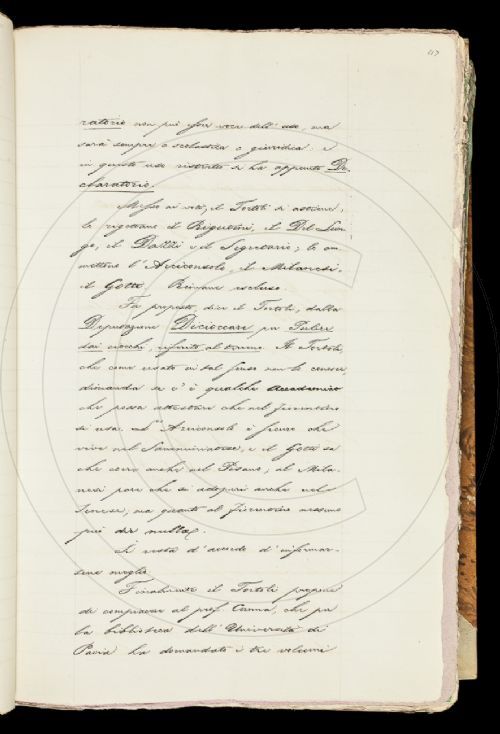 117
ratorio non può esser voce dell' uso, ma
sarà sempre o scolastica o giuridica: e
in questo uso ristretto si ha appunto De-
claratorio.
Messo ai voti, il Tortoli si astiene;
lo rigettano il Rigutini, il Del Lun-
go, il Dazzi e il Segretario; lo am-
mettono l'Arciconsolo, il Milanesi,
il Gotti. Rimane escluso.
Fu proposto, dice il Tortoli, dalla
Deputazione Decioccare per Pulire
dai ciocchi, riferito al terreno. Il Tortoli,
che come usato in tal senso non lo conosce,
dimanda se c'è qualche Accademico
che possa attestare che nel fiorentino
si usa. L'Arciconsolo è sicuro che
vive nel Sanminiatese, e il Gotti sa
che corre anche nel Pisano; al Mila-
nesi pare che si adoperi anche nel
Senese; ma quanto al fiorentino nessuno
può dir nulla.
Si resta d'accordo d'informar-
sene meglio.
Finalmente il Tortoli propone
di compiacere al prof. Canna, che per
la biblioteca dell'Università di
Pavia ha domandato i tre volumi